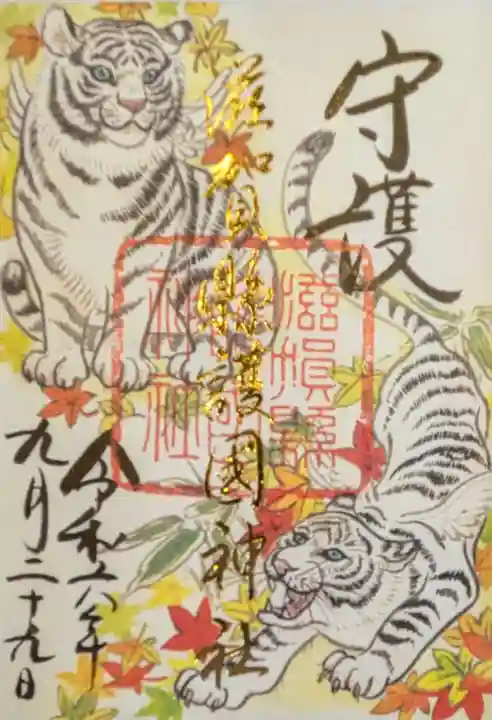 守護
滋賀縣護國神社
滋賀縣護國神社
令和六年
九月二十九日